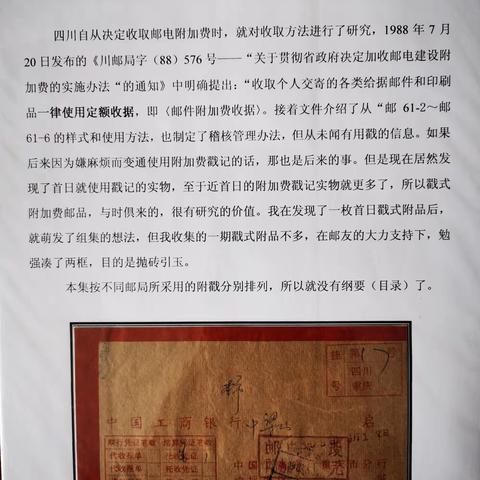 四川自从决定收取邮电附加费时，就对收取方法进行了研究，1988 年 7 月
20 日发布的《川邮局字（88）576 号——“关于贯彻省政府决定加收邮电建设附
加费的实施办法“的通知》中明确提出：“收取个人交寄的各类给据邮件和印刷
品一律使用定额收据，即〈邮件附加费收据〉。接着文件介绍了从“邮 61-2～邮
61-6 的样式和使用方法，也制定了稽核管理办法，但从未闻有用戳的信息。如果
后来因为嫌麻烦而变通使用附加费戳记的话，那也是后来的事。但是现在居然发
现了首日就使用戳记的实物，至于近首日的附加费戳记实物就更多了，所以戳式
附加费邮品，与时俱来的，很有研究的价值。我在发现了一枚首日戳式附品后，
就萌发了组集的想法，但我收集的一期戳式附品不多，在邮友的大力支持下，勉
强凑了两框，目的是抛砖引玉。
本集按不同邮局所采用的附戳分别排列，所以就没有纲要（目录）了。
挂 第 17 号
四川
号 重庆
中国工商银行 启
银行凭证签收 结算凭证签收
代收报单
代收报单 托收凭证